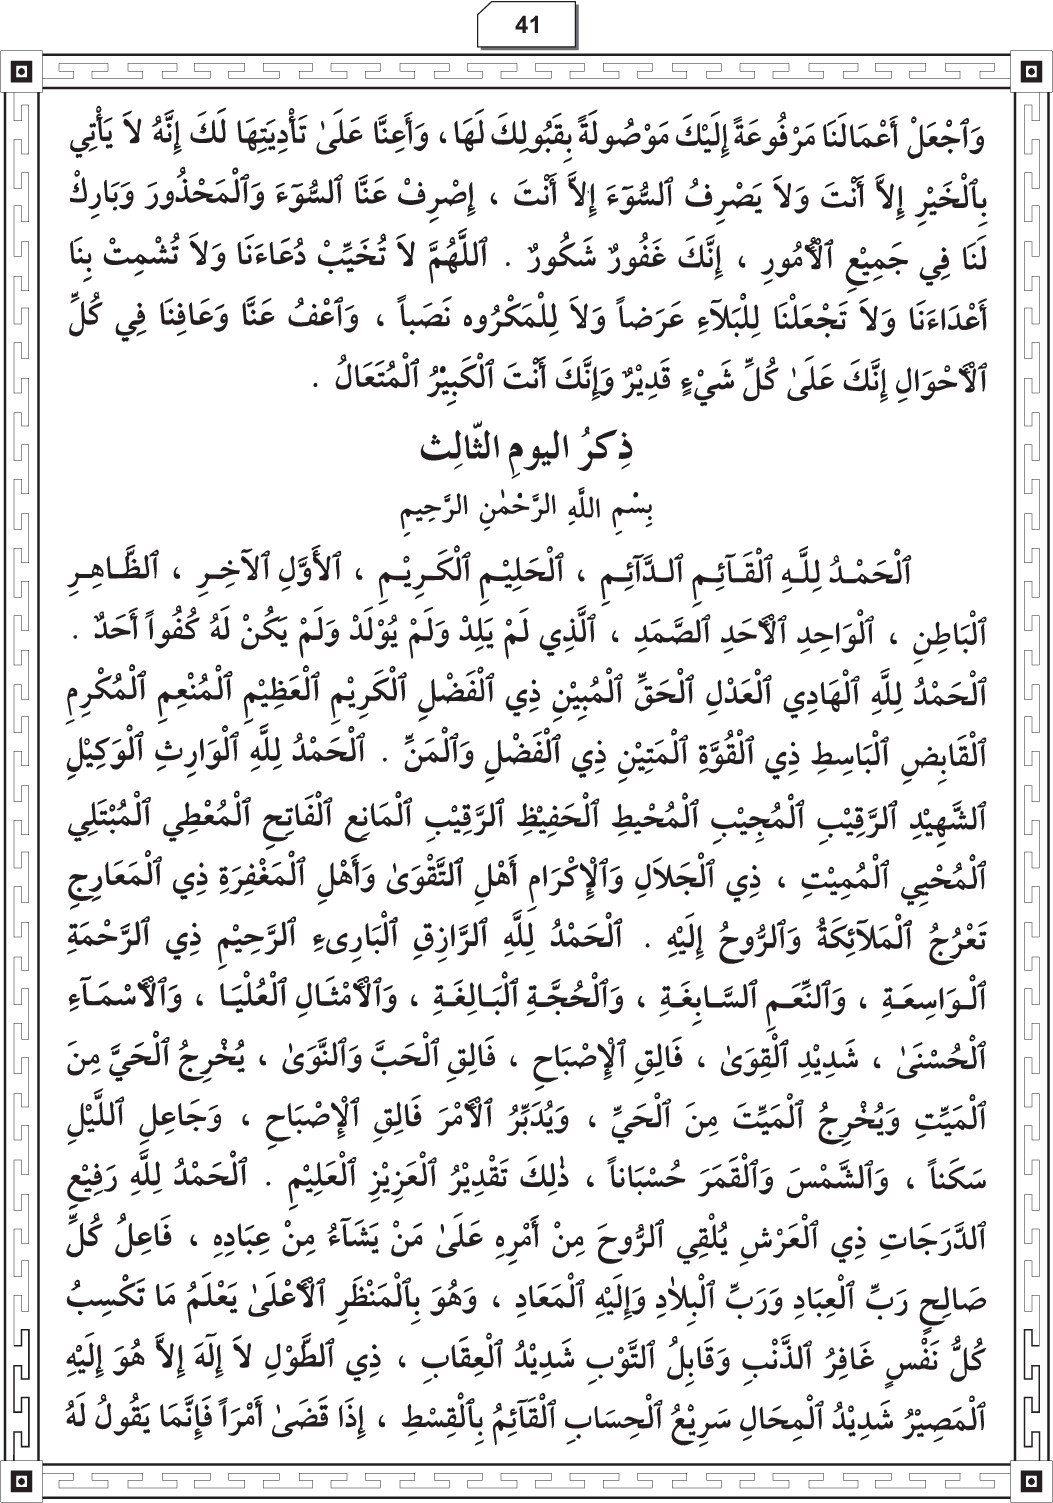 41
وَٱجْعَلْ أَعْمَالَنَا مَرْفُوعَةً إِلَيْكَ مَوْصُولَةً بِقَبُولِكَ لَهَا ، وَأَعِنَّا عَلَىٰ تَأْدِيَتِهَا لَكَ إِنَّهُ لاَ يَأْتِي
بِٱلْخَيْرِ إِلاَّ أَنْتَ وَلاَ يَصْرِفُ ٱلسُّوٓءَ إِلاَّ أَنْتَ ، إِصْرِفْ عَنَّا ٱلسُّوٓءَ وَٱلْمَحْذُورَ وَبَارِكْ
لَنَا فِي جَمِيْعِ ٱلْأُمُورِ ، إِنَّكَ غَفُورٌ شَكُورٌ . ٱللَّهُمَّ لاَ تُخَيِّبْ دُعَاءَنَا وَلاَ تُشْمِتْ بِنَا
أَعْدَاءَنَا وَلاَ تَجْعَلْنَا لِلْبَلآءِ عَرَضاً وَلاَ لِلْمَكْرُوه نَصَباً ، وَٱعْفُ عَنَّا وَعَافِنَا فِي كُلِّ
ٱلْأَحْوَالِ إِنَّكَ عَلَىٰ كُلِّ شَيْءٍ قَدِيْرٌ وَإِنَّكَ أَنْتَ ٱلْكَبِيْرُ ٱلْمُتَعَالُ .
ذِكرُ اليومِ الثّالِث
بِسْمِ اللَّهِ الرَّحْمٰنِ الرَّحِيمِ
ٱلْحَمْـدُ لِلَّـهِ ٱلْقَـآئِـمِ ٱلـدَّآئِـمِ ، ٱلْحَلِيْـمِ ٱلْكَـرِيْـمِ ، ٱلأَوَّلِ ٱلآخِـرِ ، ٱلظَّـاهِـرِ
ٱلْبَاطِنِ ، ٱلْوَاحِدِ ٱلْأَحَدِ ٱلصَّمَدِ ، ٱلَّذِي لَمْ يَلِدْ وَلَمْ يُوْلَدْ وَلَمْ يَكُنْ لَهُ كُفُواً أَحَدٌ .
ٱلْحَمْدُ لِلَّهِ ٱلْهَادِي ٱلْعَدْلِ ٱلْحَقِّ ٱلْمُبِيْنِ ذِي ٱلْفَضْلِ ٱلْكَرِيْمِ ٱلْعَظِيْمِ ٱلْمُنْعِمِ ٱلْمُكْرِمِ
ٱلْقَابِضِ ٱلْبَاسِطِ ذِي ٱلْقُوَّةِ ٱلْمَتِيْنِ ذِي ٱلْفَضْلِ وَٱلْمَنِّ . ٱلْحَمْدُ لِلَّهِ ٱلْوَارِثِ ٱلْوَكِيْلِ
ٱلشَّهِيْدِ ٱلرَّقِيْبِ ٱلْمُجِيْبِ ٱلْمُحْيطِ ٱلْحَفِيْظِ ٱلرَّقِيْبِ ٱلْمَانِعِ ٱلْفَاتِحِ ٱلْمُعْطِي ٱلْمُبْتَلِي
ٱلْمُحْيِي ٱلْمُمِيْتِ ، ذِي ٱلْجَلاَلِ وَٱلْإِكْرَامِ أَهْلِ ٱلتَّقْوَىٰ وَأَهْلِ ٱلْمَغْفِرَةِ ذِي ٱلْمَعَارِجِ
تَعْرُجُ ٱلْمَلآئِكَةُ وَٱلرُّوحُ إِلَيْهِ . ٱلْحَمْدُ لِلَّهِ ٱلرَّازِقِ ٱلْبَارِىءِ ٱلرَّحِيْمِ ذِي ٱلرَّحْمَةِ
ٱلْـوَاسِعَـةِ ، وَٱلنِّعَـمِ ٱلسَّـابِغَـةِ ، وَٱلْحُجَّـةِ ٱلْبَـالِغَـةِ ، وَٱلْأَمْثَـالِ ٱلْعُلْيَـا ، وَٱلْأَسْمَـآءِ
ٱلْحُسْنَىٰ ، شَدِيْدِ ٱلْقِوَىٰ ، فَالِقِ ٱلْإِصْبَاحِ ، فَالِقِ ٱلْحَبَّ وَٱلنَّوَىٰ ، يُخْرِجُ ٱلْحَيَّ مِنَ
ٱلْمَيِّتِ وَيُخْرِجُ ٱلْمَيِّتَ مِنَ ٱلْحَيِّ ، وَيُدَبِّرُ ٱلْأَمْرَ فَالِقِ ٱلْإِصْبَاحِ ، وَجَاعِلِ ٱللَّيْلِ
سَكَناً ، وَٱلشَّمْسَ وَٱلْقَمَرَ حُسْبَاناً ، ذٰلِكَ تَقْدِيْرُ ٱلْعَزِيْزِ ٱلْعَلِيْمِ . ٱلْحَمْدُ لِلَّهِ رَفِيْعِ
ٱلدَّرَجَاتِ ذِي ٱلْعَرْشِ يُلْقِي ٱلرُّوحَ مِنْ أَمْرِهِ عَلَىٰ مَنْ يَشَآءُ مِنْ عِبَادِهِ ، فَاعِلُ كُلِّ
صَالِحٍ رَبِّ ٱلْعِبَادِ وَرَبِّ ٱلْبِلاٰدِ وَإِلَيْهِ ٱلْمَعَادِ ، وَهُوَ بِٱلْمَنْظَرِ ٱلْأَعْلَىٰ يَعْلَمُ مَا تَكْسِبُ
كُلُّ نَفْسٍ غَافِرُ ٱلذَّنْبِ وَقَابِلُ ٱلتَّوْبِ شَدِيْدُ ٱلْعِقَابِ ، ذِي ٱلطَّوْلِ لاَ إِلٓهَ إِلاَّ هُوَ إِلَيْهِ
ٱلْمَصِيْرُ شَدِيْدُ ٱلْمِحَالِ سَرِيْعُ ٱلْحِسَابِ ٱلْقَآئِمُ بِٱلْقِسْطِ ، إِذَا قَضَىٰ أَمْرَاً فَإِنَّمَا يَقُولُ لَهُ